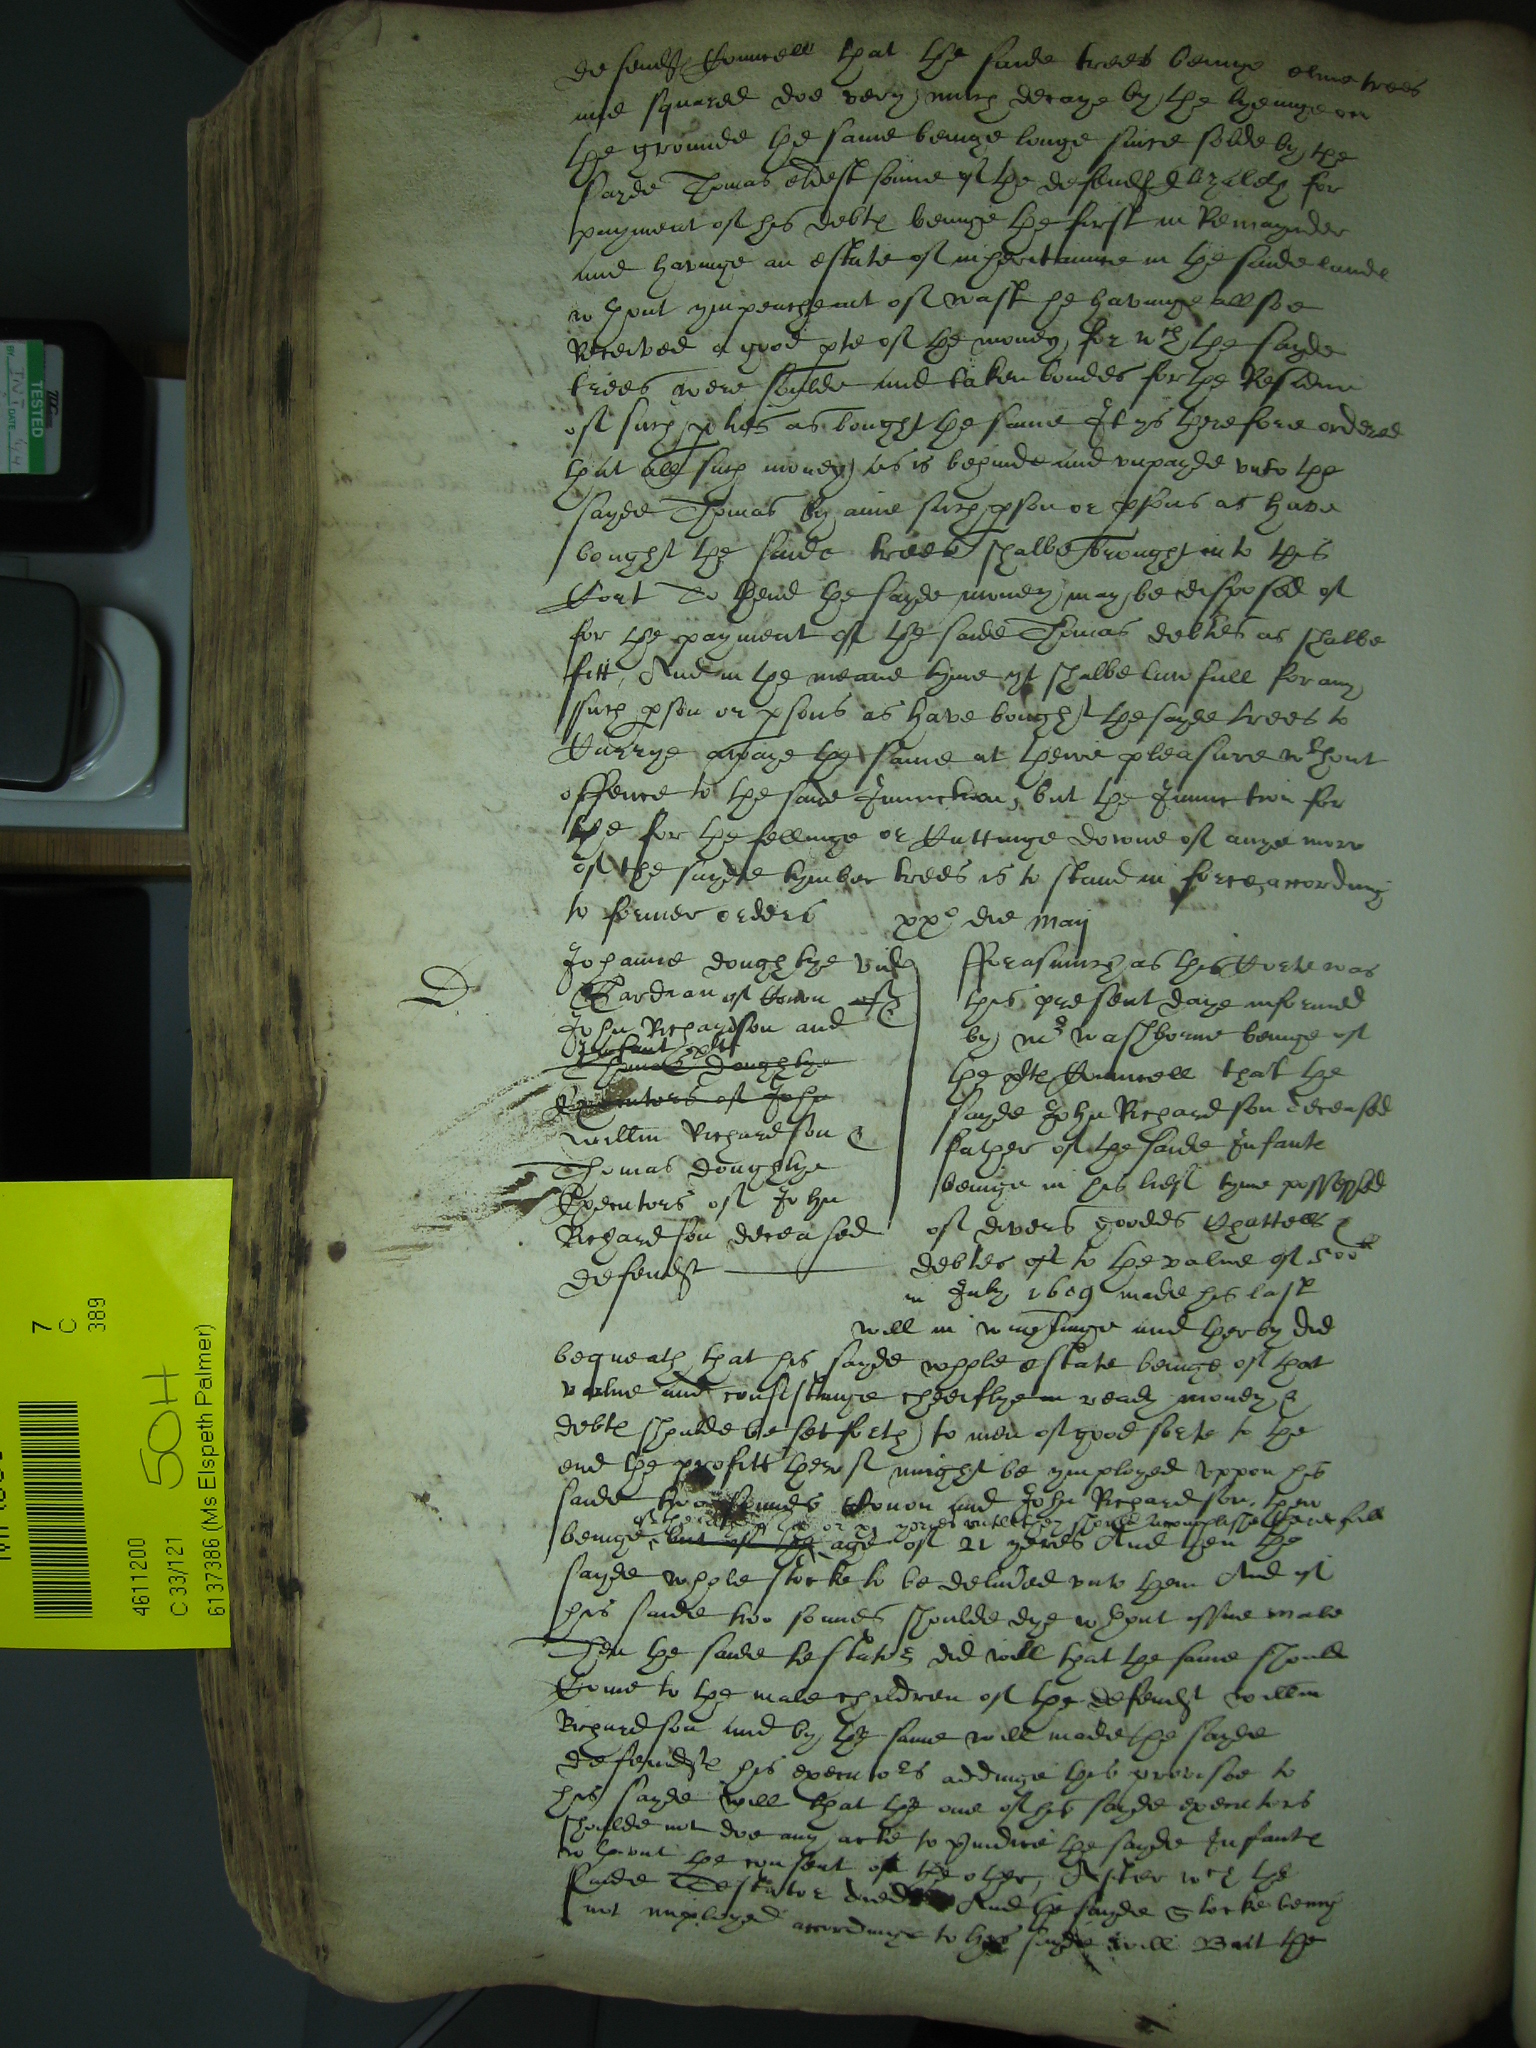 defend{ts} Councell that the saide trees beinge elme trees
and squared doe very much decaye by the lyeinge on
the grounde the same beinge longe since solde by the
sayde Thomas eldest sonne of the defend{t} for
payment of his debt{es} beinge the first in Remaynder
and havinge an estate of inheritaunce in the saide lande
w{th}out ympeachem{en}t of wast he havinge allsoe
Received a good pte of the money for w{ch} the sayde
trees were soulde and taken bondes for the Residue
of such pties as bought the same It ys therefore ordered
that all such money as is behinde and unpayde unto the
sayde Thomas by anie such pson or psons as have
bought the saide trees shalbe brought into this
Cort To thend the sayde money may be disposed of
for the payment of the saide Thomas debtes as shalbe
fitt, And in the meane tyme yt shalbe lawfull for any
such pson or psons as have bought the sayde trees to
Carrye awaye the same at theire pleasure w{th}out
offence to the said Iniunction, but the Iniunction for
the for the fellinge or Cuttinge downe of anye more
of the sayde tymber trees is to stand in force accordinge
to former orders xx{o} die Maij
D
Johanne Doughtye vid
Gardian of Conon
John Richardson and
infant plt
Thomas Doughtye
Executors of John
Willm Richardson &
Thomas Doughtye
Executors of John
Richardson deceased
defend{t}
Forasmuch as this Corte was
this present daye informed
by M{r} Washborne beinge of
the plt{s} Councell that the
sayde John Richardson deceased
father of the saide Infante
beinge in his lief tyme possessed
of divers goodes Chattells &
debtes of to the value of 500{li}
in July 1609 made his last
will in wrightinge and therby did
bequeath that his sayde whole estate beinge of that
value and consistinge cheeflye in ready money &
debt{es} shoulde be set forth to men of good sorte to the
end the profitt therof might be ymployed uppon his
saide two sonnes Conon and John Richardson, then
yeres untill they should accomplishe their full
beinge but of the age of 21 yeres And then the
sayde whole stocke to be deliv{er}ed unto them And yf
his saide two sonnes shoulde dye w{th}out yssue male
Then the saide testator did will that the same should
Come to the male children of the defend{t} Willm
Richardson and by the same will made the sayde
defend{tes} his executors addinge this provisoe to
his sayde will that the one of his sayde executors
shoulde not doe any acte to p{re}iudice the sayde Infant{es}
w{th}out the consent of the other, After w{ch} the
saide Testator died And the sayde Stocke being
not imployed accordinge to his sayde will But the
TESTED
DATE
7
C
389
50H
4611200
C 33/121
6137386 (Ms Elspeth Palmer)